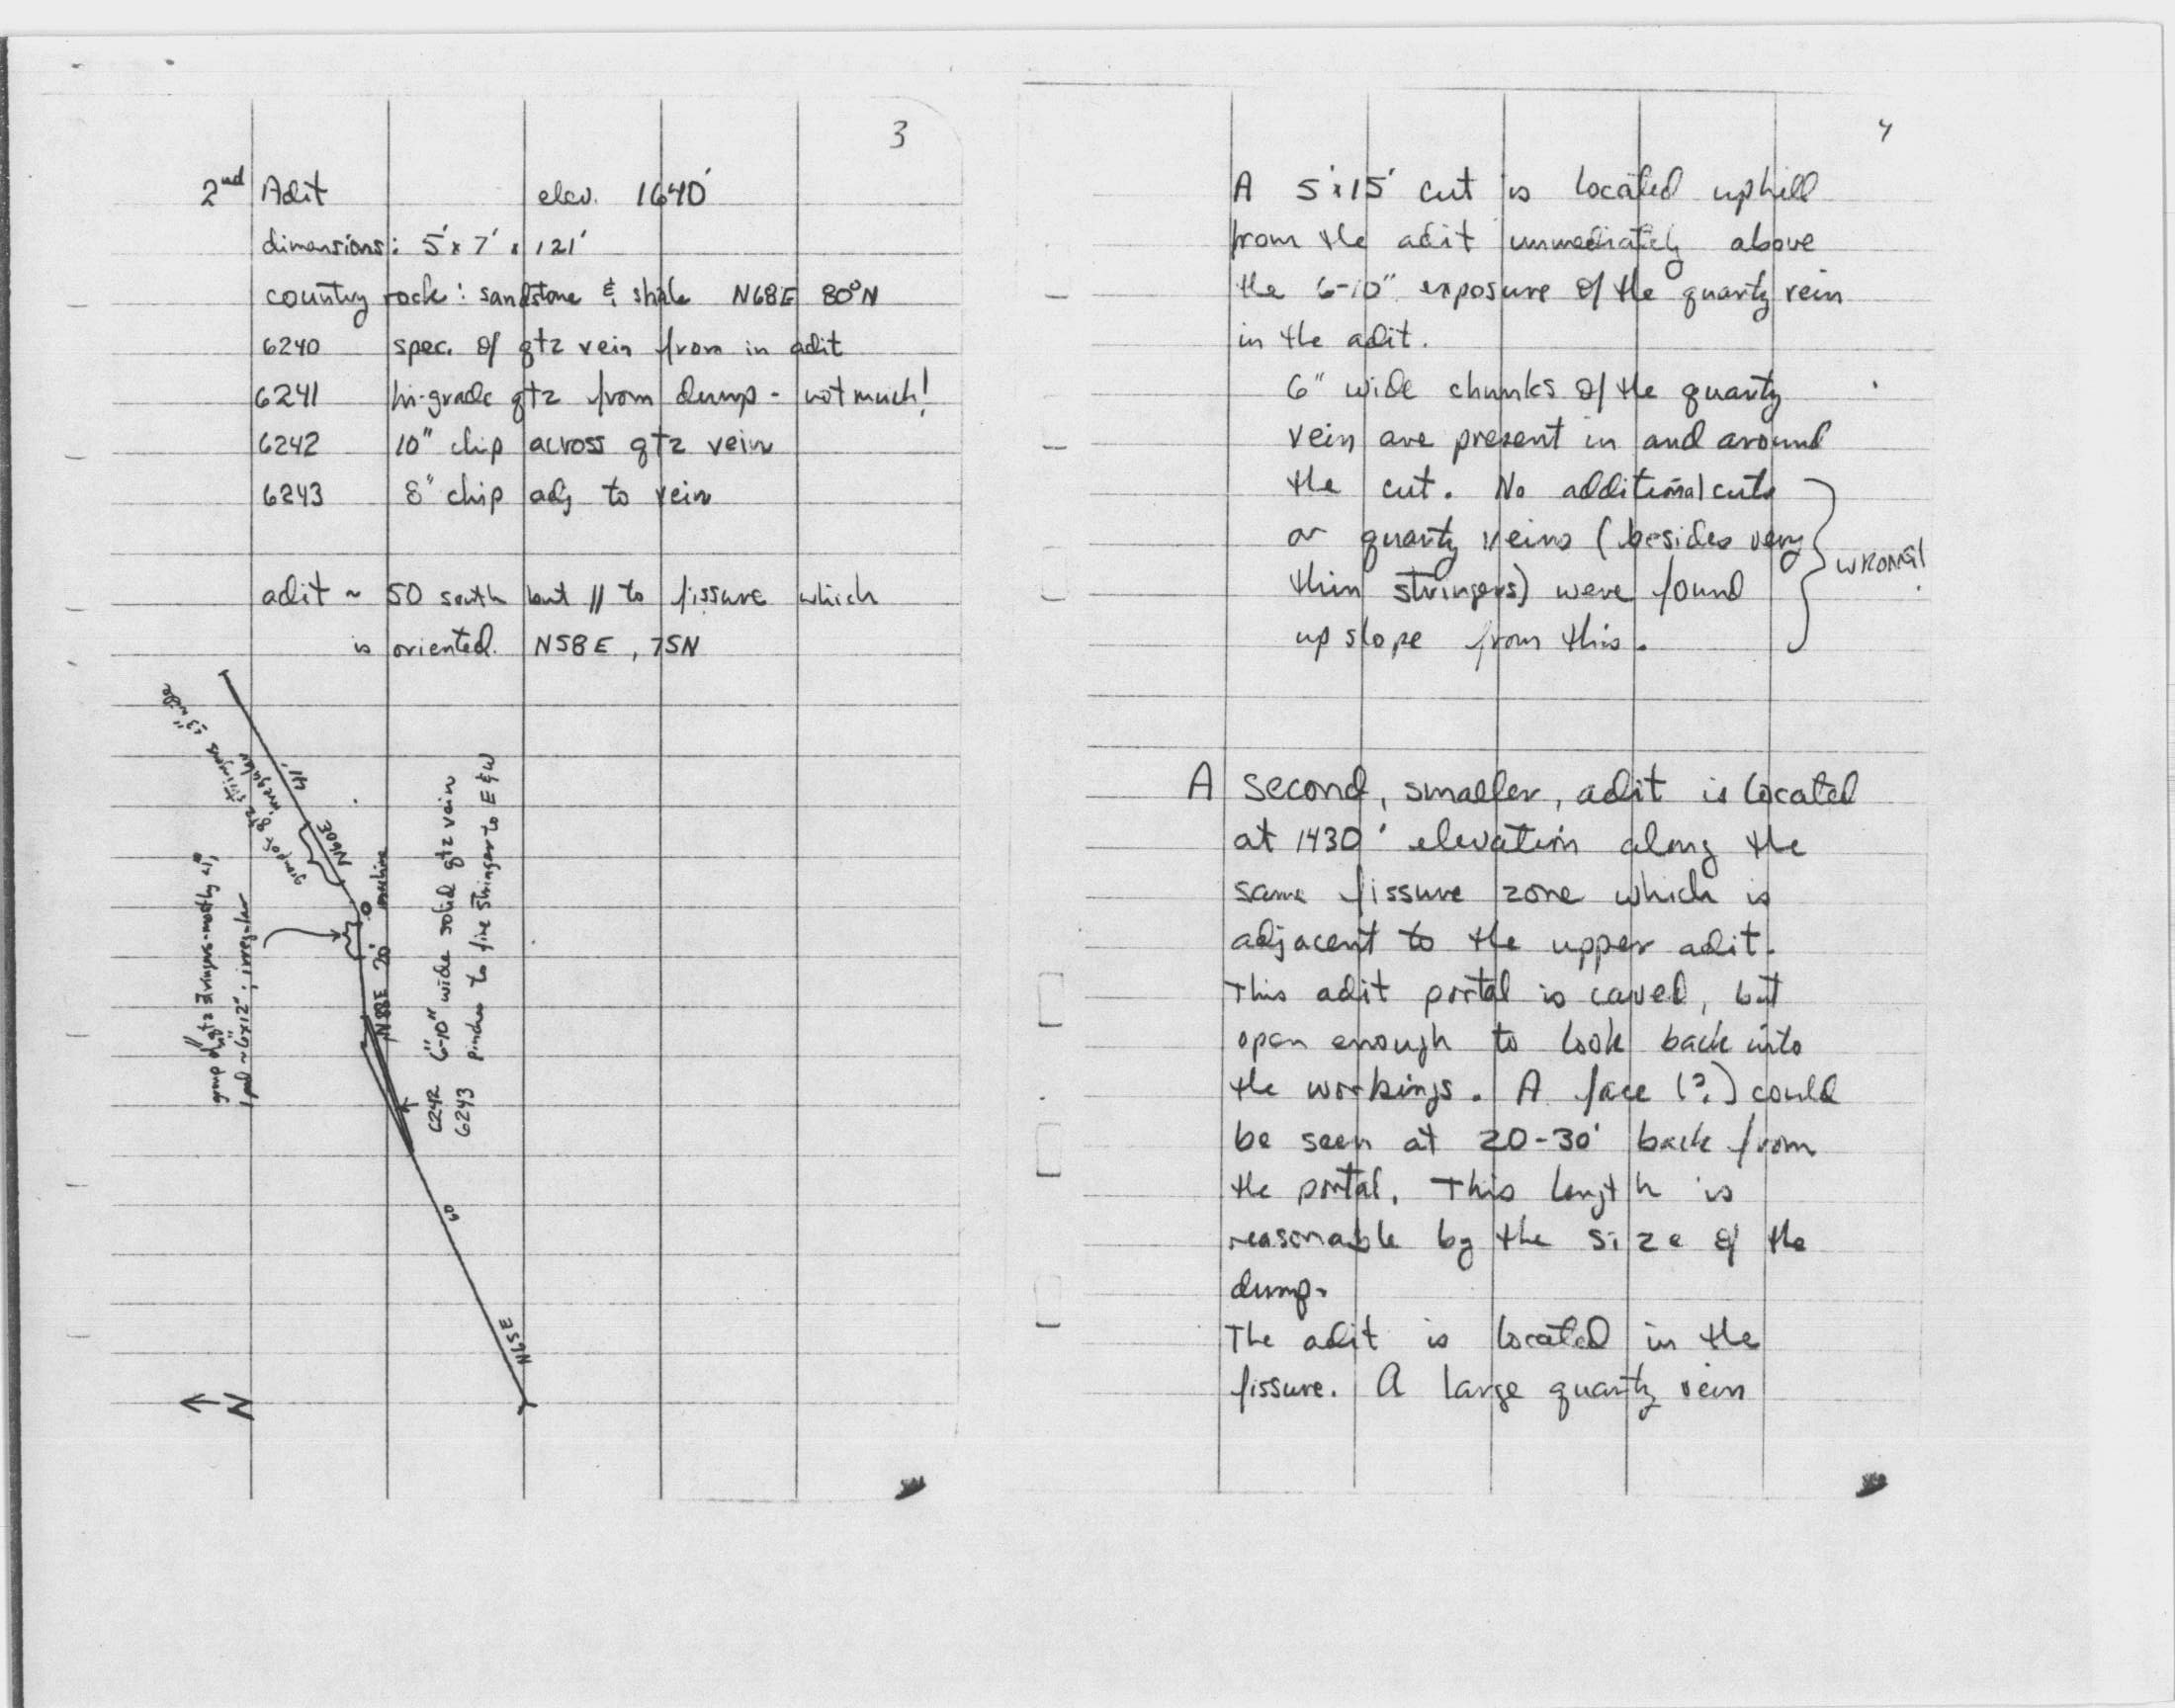 3
2nd Adit elev. 1640'
dimensions: 5' x 7' x 121'
country rock: sandstone & shale N68E 80°N
6240 spec. of qtz vein from in adit
6241 hi-grade qtz from dump - not much!
6242 10" chip across qtz vein
6243 8" chip adj to vein
adit ~ 50 south but // to fissure which
is oriented. N58E, 75N
group of qtz stringers <3" wide
irregular
41'
N60E
machine
group of qtz stringers - mostly <1",
1 pod ~6"x12"; irregular
N88E 20'
6242 6-10" wide solid qtz vein
6243 pinches to fine stringer to E & W
60
N65E
N
4
A 5'x15' cut is located uphill
from the adit immediately above
the 6-10" exposure of the quartz vein
in the adit.
6" wide chunks of the quartz
vein are present in and around
the cut. No additional cuts
or quartz veins (besides very
thin stringers) were found
up slope from this.
WRONG!
A second, smaller, adit is located
at 1430' elevation along the
same fissure zone which is
adjacent to the upper adit.
This adit portal is caved, but
open enough to look back into
the workings. A face (?) could
be seen at 20-30' back from
the portal. This length is
reasonable by the size of the
dump.
The adit is located in the
fissure. A large quartz vein